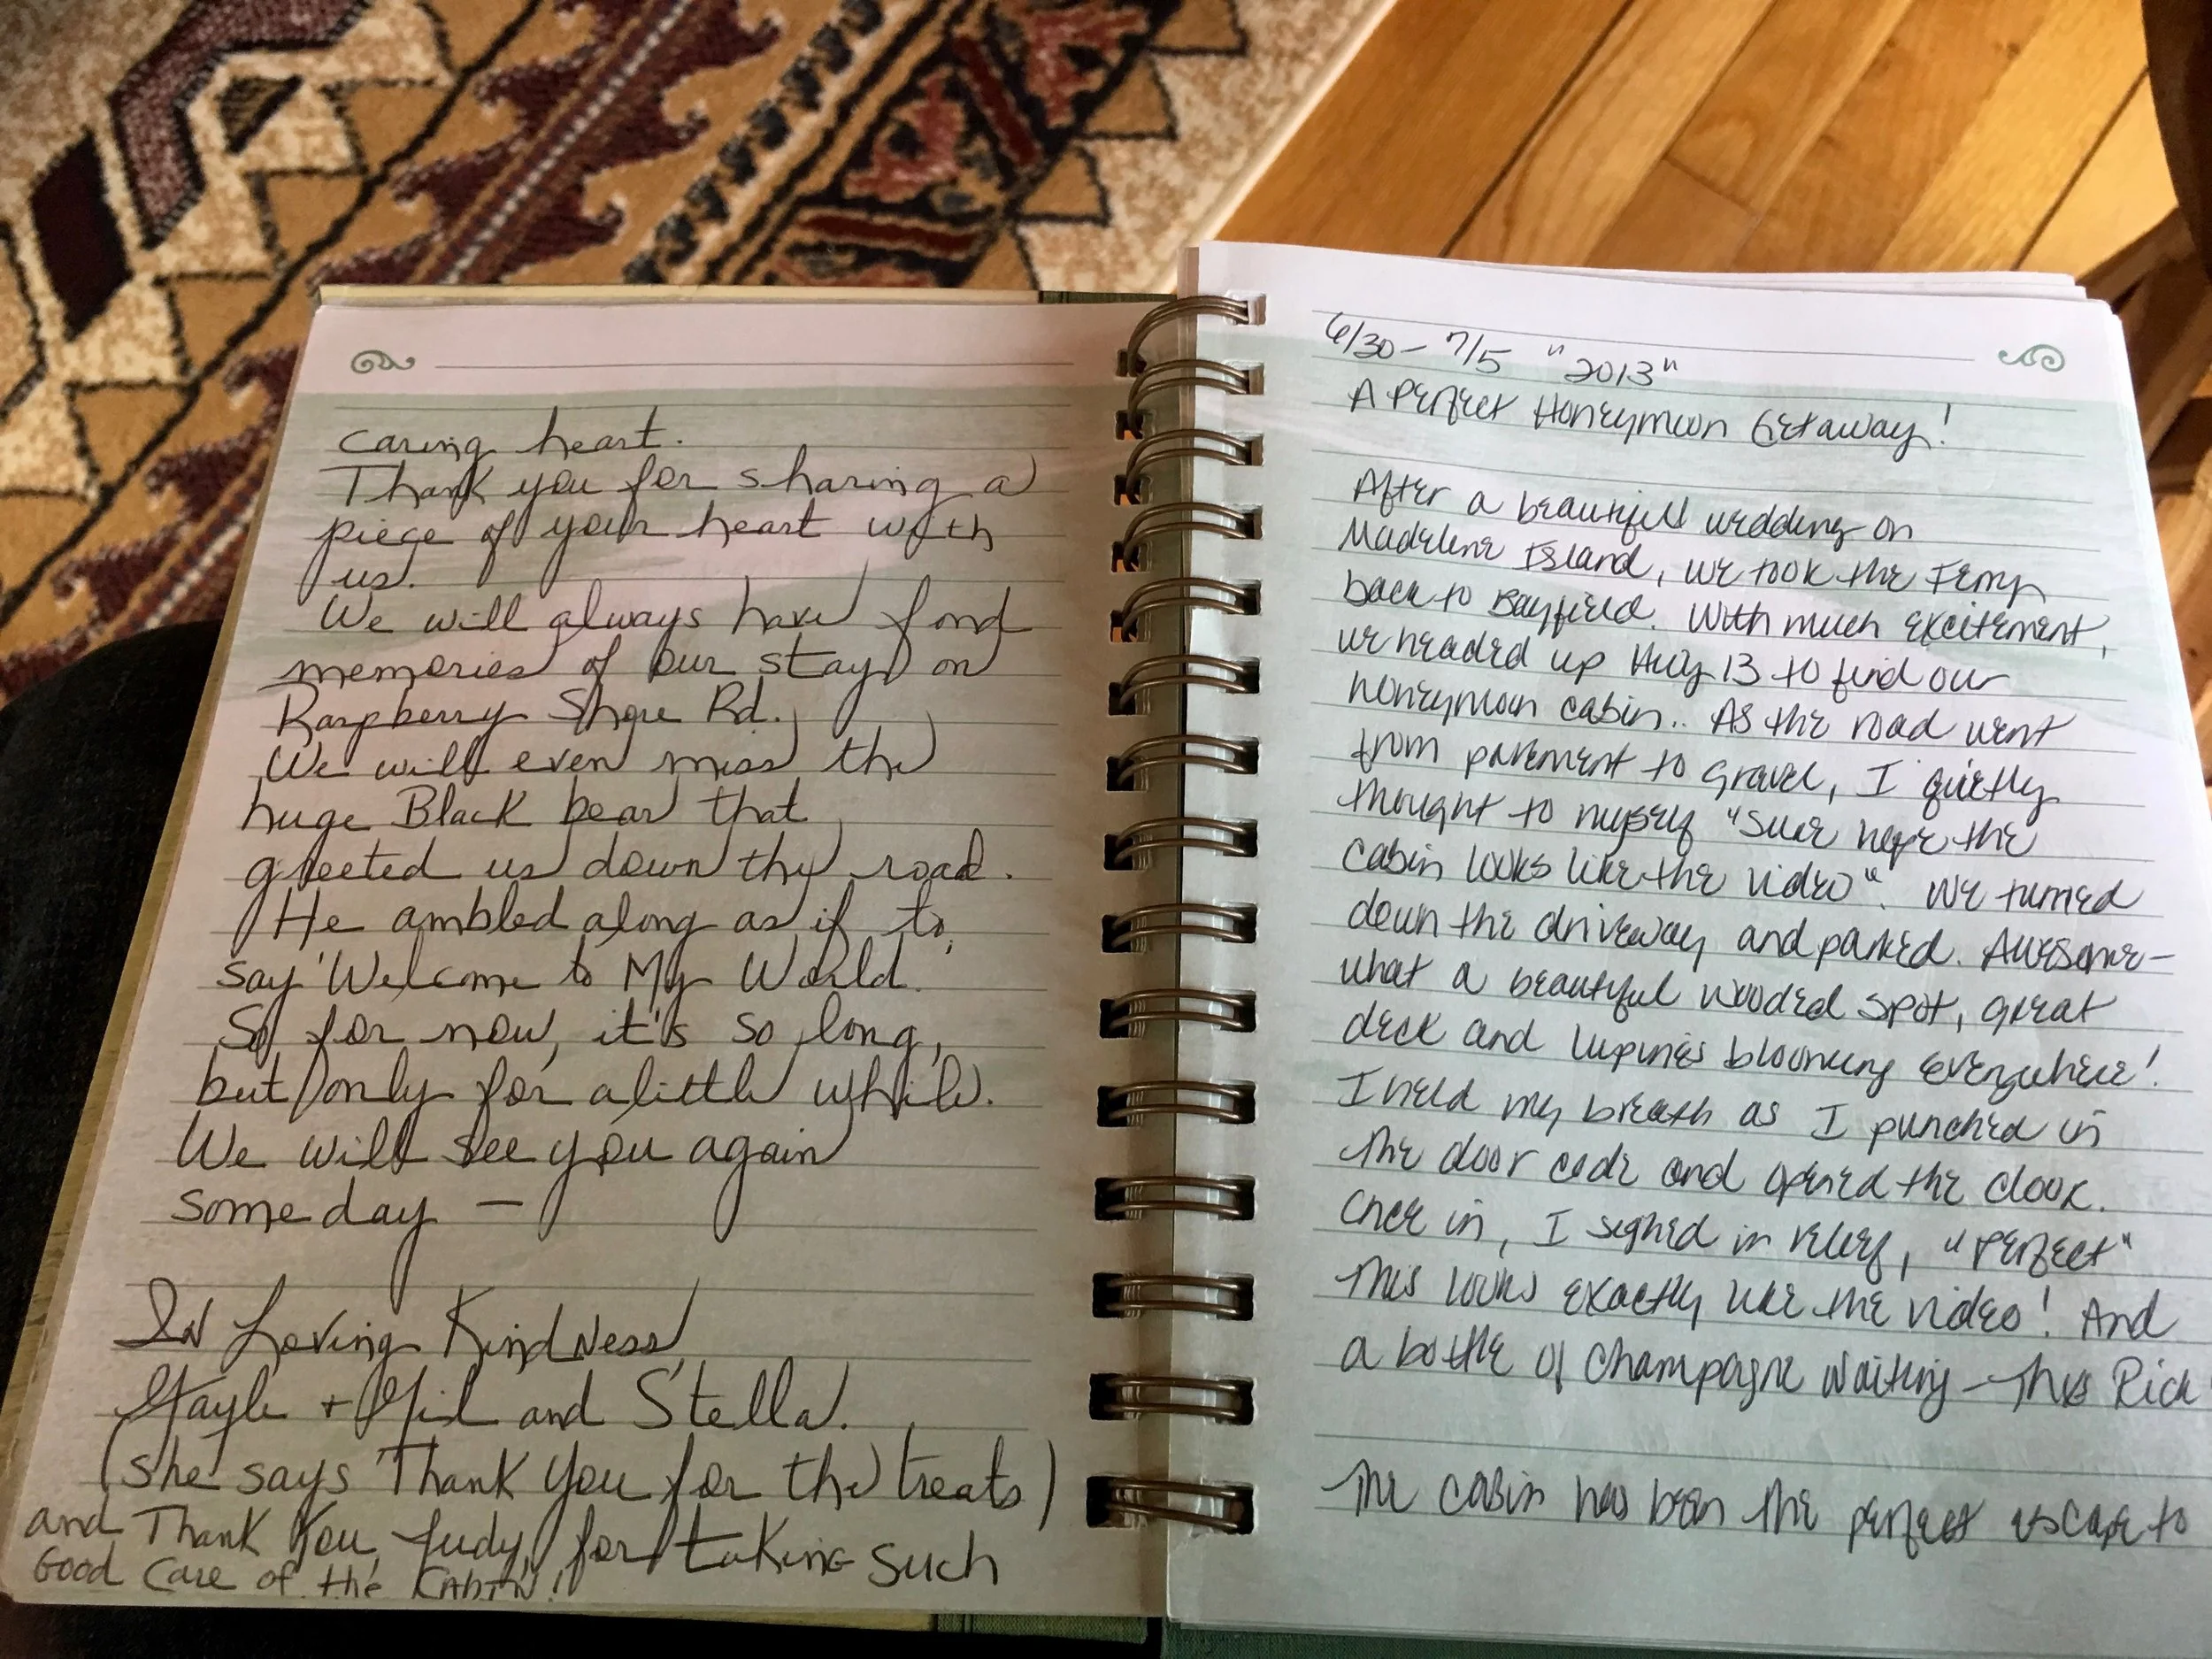 caring heart.
Thank you for sharing a
piece of your heart with
us.
We will always have fond
memories of our stay on
Raspberry Shore Rd.
We will even miss the
huge Black bear that
greeted us down thy road.
He ambled along as if to,
say 'Welcome to My World.'
So for now, it's so long,
but only for a little while.
We will see you again
someday —
In Loving Kindness,
Gayle + Gil and Stella.
(she says Thank You for the treats)
and Thank You, Judy, for taking such
Good Care of the Cabin!
6/30 - 7/5 "2013"
A Perfect Honeymoon Getaway!
After a beautiful wedding on
Madeline Island, we took the Ferry
back to Bayfield. With much excitement,
we headed up Hwy 13 to find our
honeymoon cabin.. As the road went
from pavement to gravel, I quietly
thought to myself "Sure hope the
cabin looks like the video". We turned
down the driveway and parked. Awesome-
what a beautiful wooded spot, great
deck and lupines blooming everywhere!
I held my breath as I punched in
the door code and opened the door.
Once in, I sighed in relief, "Perfect"
This looks exactly like the video! And
a bottle of Champagne waiting - Thx Rick
The cabin has been the perfect escape to